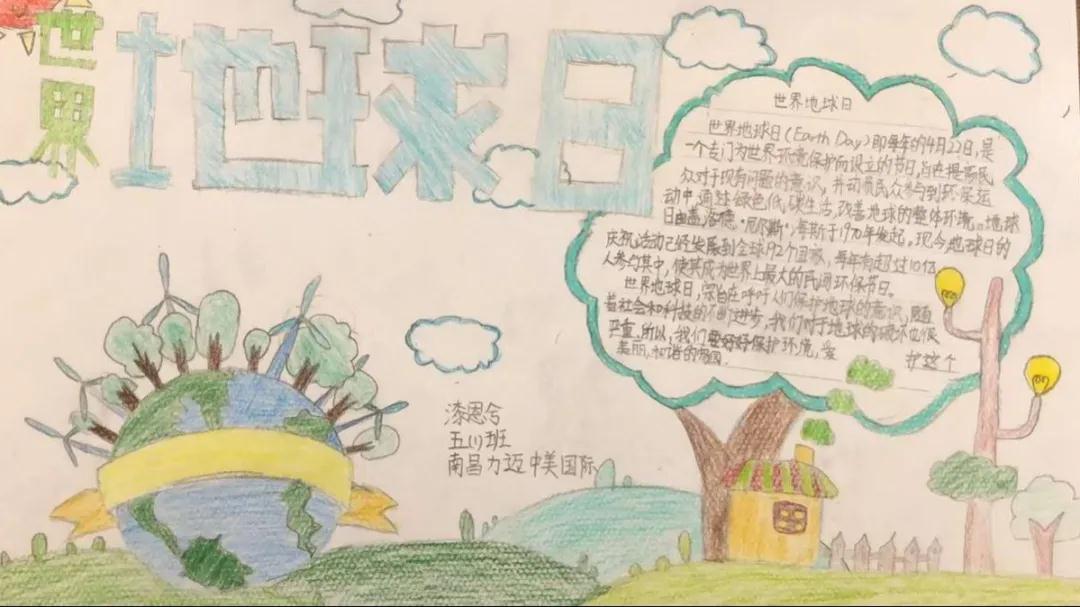 世界地球日
世界地球日
世界地球日(Earth Day)即每年的4月22日,是
一个专门为世界环境保护而设立的节日,旨在提高民
众对于现有问题的意识,并动员民众参与到环保运
动中,通过绿色低碳生活,改善地球的整体环境。地球
日由盖洛德·尼尔斯·海斯于1970年发起。现今地球日的
庆祝活动已经发展到全球192个国家,每年有超过10亿
人参与其中,使其成为世界上最大的民间环保节日。
世界地球日,宗旨在呼吁人们保护地球的意识,随
着社会和科技的不断进步,我们对于地球的破坏也很
严重,所以,我们要好好保护环境,爱护这个
美丽,和谐的
漆恩兮
五(1)班
南昌力迈中美国际